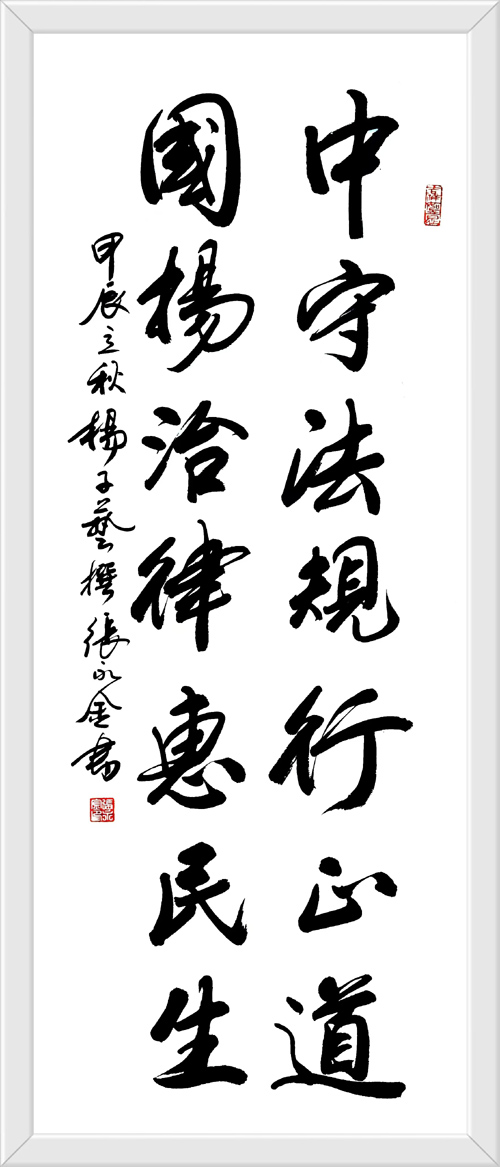 中守法規行正道
國楊治律惠民生
甲辰立秋楊子藝撰張永金書